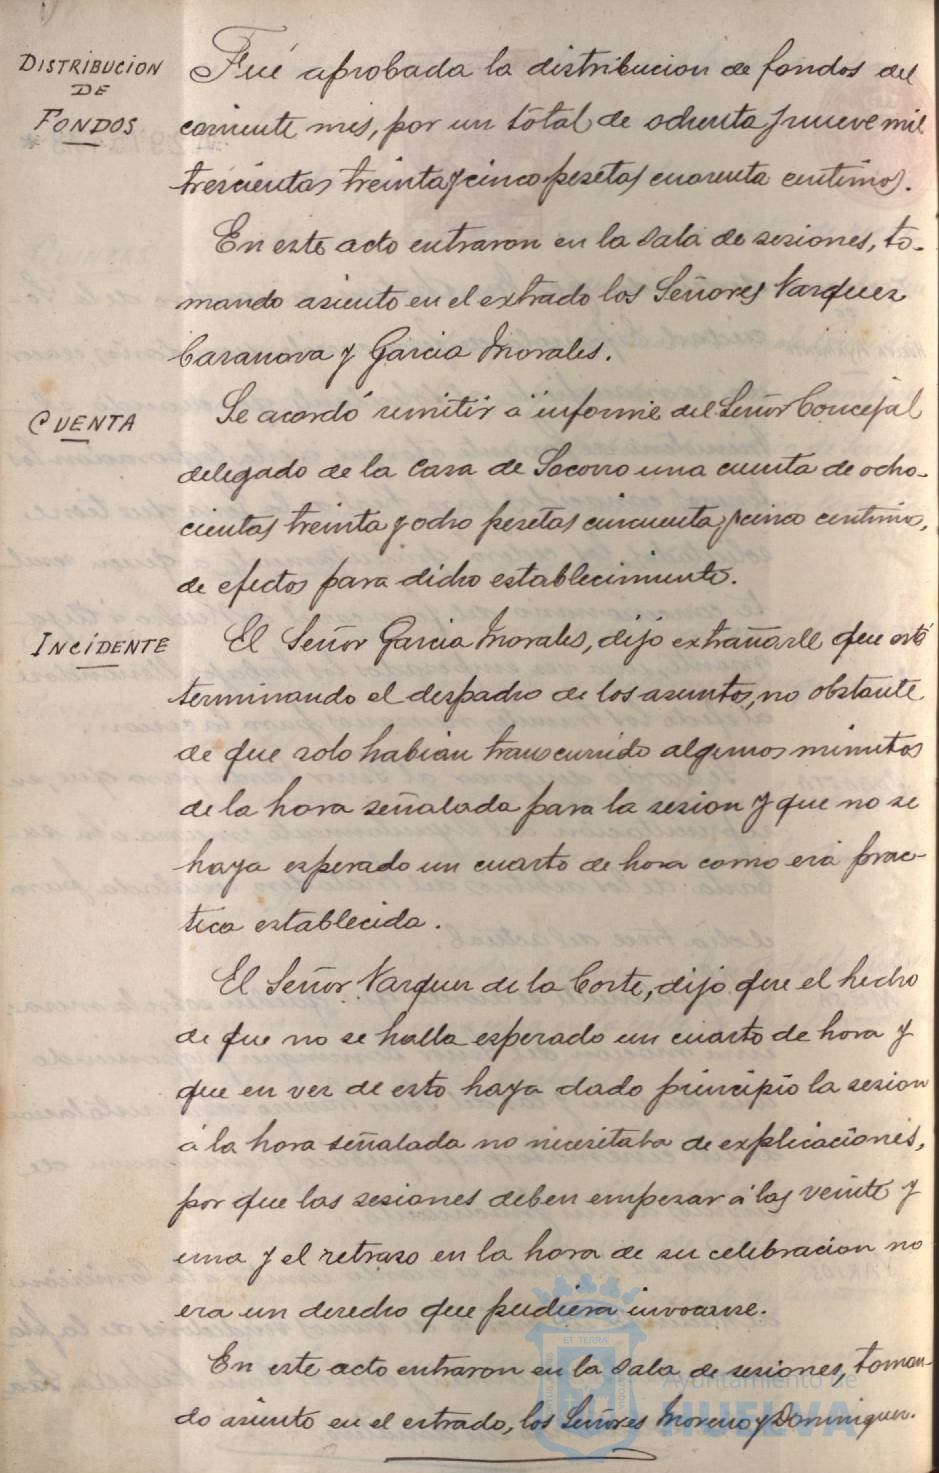 DISTRIBUCION
DE
FONDOS
Fué aprobada la distribucion de fondos del
corriente mes, por un total de ochenta y nueve mil
trescientas treinta y cinco pesetas cuarenta centimos.
En este acto entraron en la Sala de sesiones, to-
mando asiento en el extrado los Señores Vazquez
Casanova y Garcia Morales.
CUENTA
Se acordó remitir a informe del Señor Concejal
delegado de la Casa de Socorro una cuenta de ocho-
cientas treinta y ocho pesetas cincuenta y cinco centimos,
de efectos para dicho establecimiento.
INCIDENTE
El Señor Garcia Morales, dijo extrañarle que esté
terminando el despacho de los asuntos, no obstante
de que solo habian transcurrido algunos minutos
de la hora señalada para la sesion y que no se
haya esperado un cuarto de hora como era prac-
tica establecida.
El Señor Vazquez de la Corte, dijo que el hecho
de que no se halla esperado un cuarto de hora y
que en vez de esto haya dado principio la sesion
á la hora señalada no necesitaba de explicaciones,
por que las sesiones deben empezar á las veinte y
una y el retraso en la hora de su celebracion no
era un derecho que pudiera invocarse.
En este acto entraron en la Sala de sesiones, toman-
do asiento en el estrado, los Señores Moreno y Dominguez.
Ayuntamiento de
HUELVA